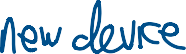 new device